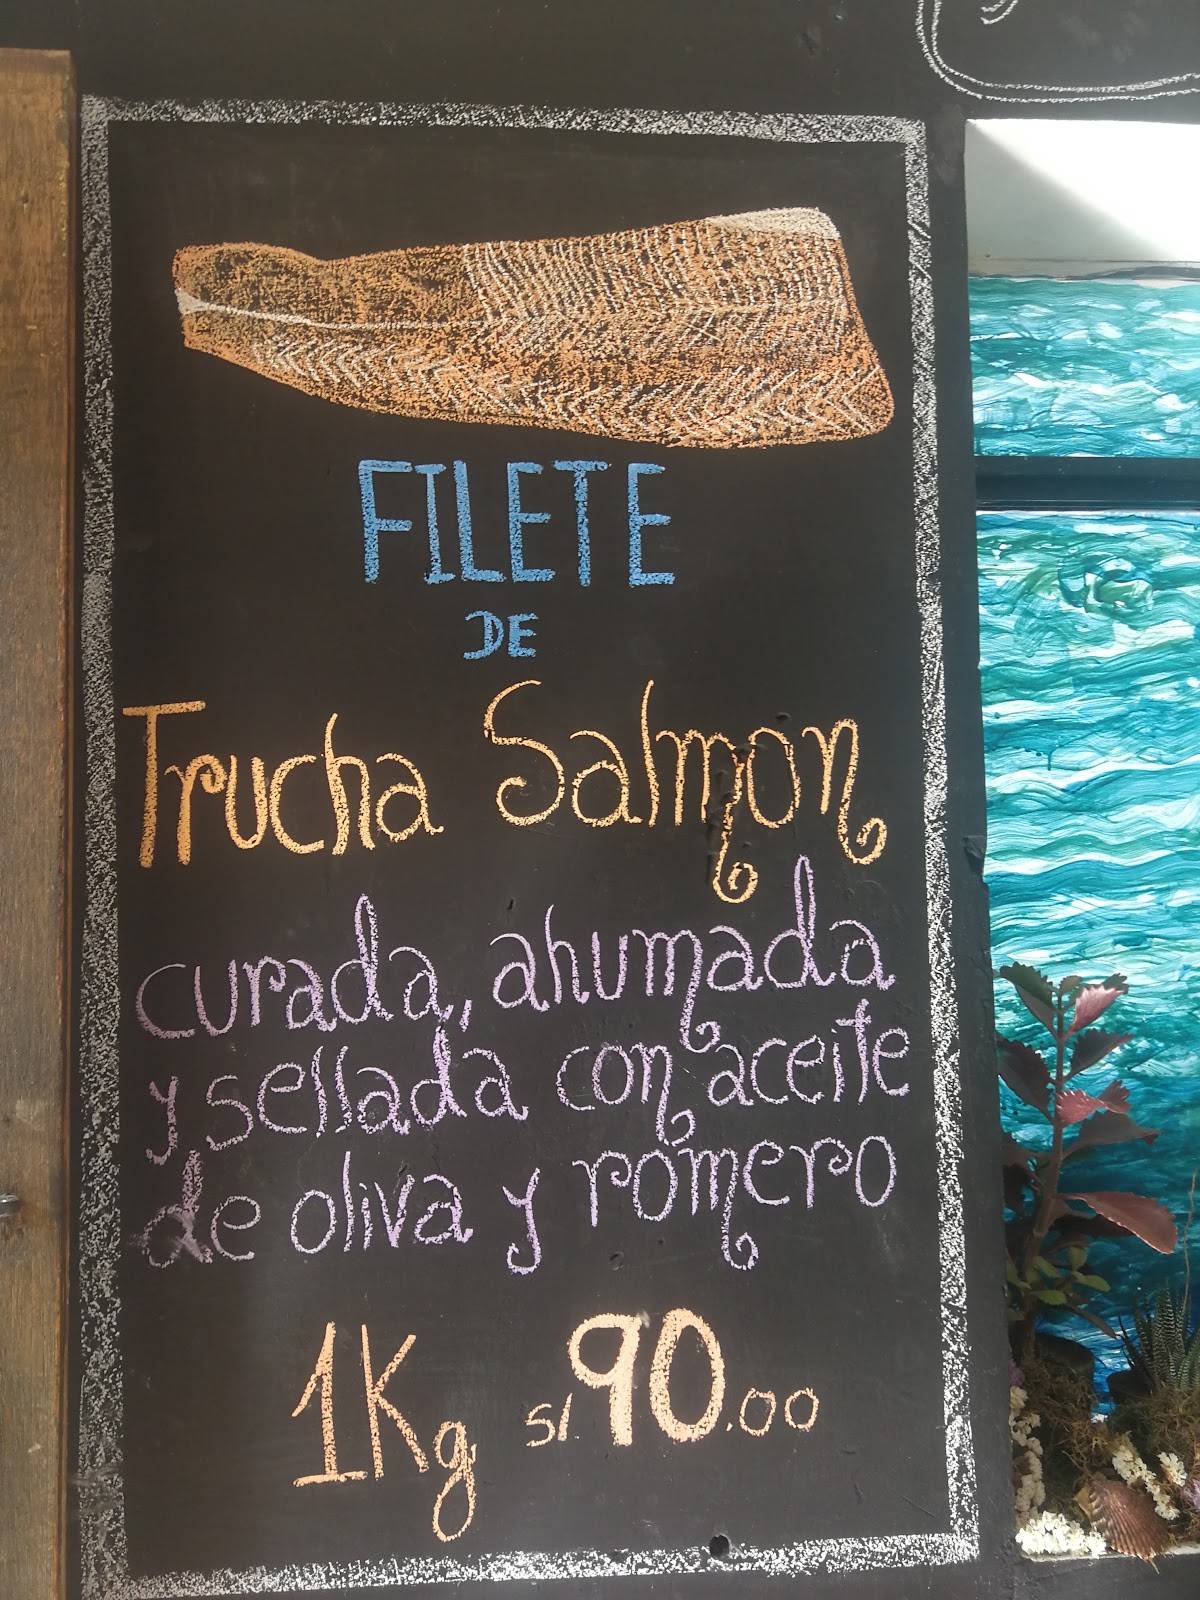 FILETE
DE
Trucha Salmon
curada, ahumada
y sellada con aceite
de oliva y romero
1Kg S/.90.00